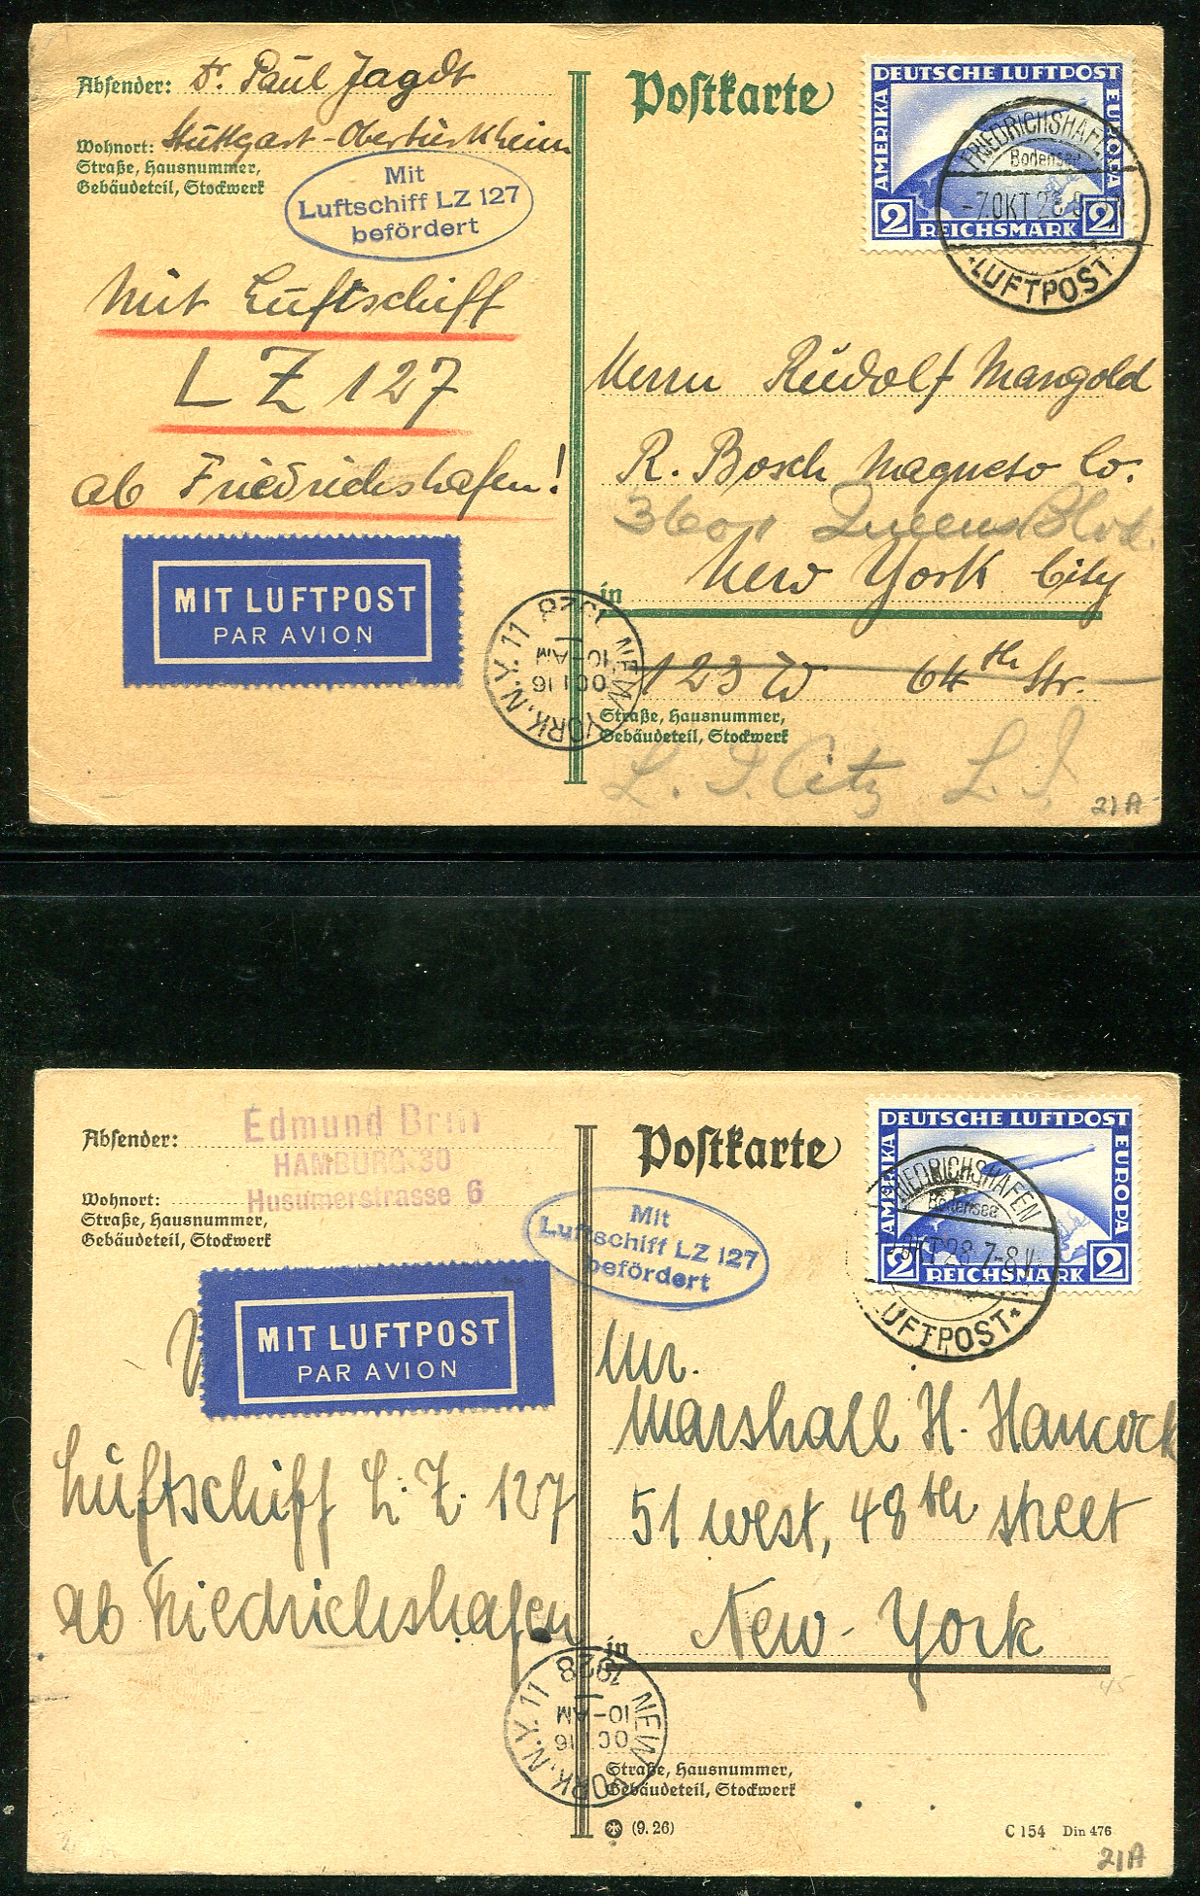 Absender: Dr. Paul Jagdt
Wohnort: Stuttgart-Obertürkheim
Straße, Hausnummer,
Gebäudeteil, Stockwerk
Mit
Luftschiff LZ 127
befördert
Mit Luftschiff
LZ 127
ab Friedrichshafen!
MIT LUFTPOST
PAR AVION
Postkarte
DEUTSCHE LUFTPOST
AMERIKA
EUROPA
2 REICHSMARK 2
FRIEDRICHSHAFEN
Bodensee
-7.OKT 28
*LUFTPOST*
Herrn Rudolf Mangold
R. Bosch Magneto Co.
3601 Queens Blvd.
in New York City
123 W 64th Str.
Straße, Hausnummer,
Gebäudeteil, Stockwerk
L. I. City L. I.
21A
NEW YORK, N.Y. 11
OCT 16
10-AM
1928
Absender: Edmund
HAMBURG 30
Wohnort: Husumerstrasse 6
Straße, Hausnummer,
Gebäudeteil, Stockwerk
Mit
Luftschiff LZ 127
befördert
MIT LUFTPOST
PAR AVION
Luftschiff L. Z. 127
ab Friedrichshafen
Postkarte
DEUTSCHE LUFTPOST
AMERIKA
EUROPA
2 REICHSMARK 2
FRIEDRICHSHAFEN
Bodensee
28 7-8
LUFTPOST*
Mr.
Marshall H. Hancock
51 west, 48th street
in New-York
45
NEW YORK, N.Y. 11
OCT 16
10-AM
1928
Straße, Hausnummer,
Gebäudeteil, Stockwerk
(9. 26)
C 154 Din 476
21A